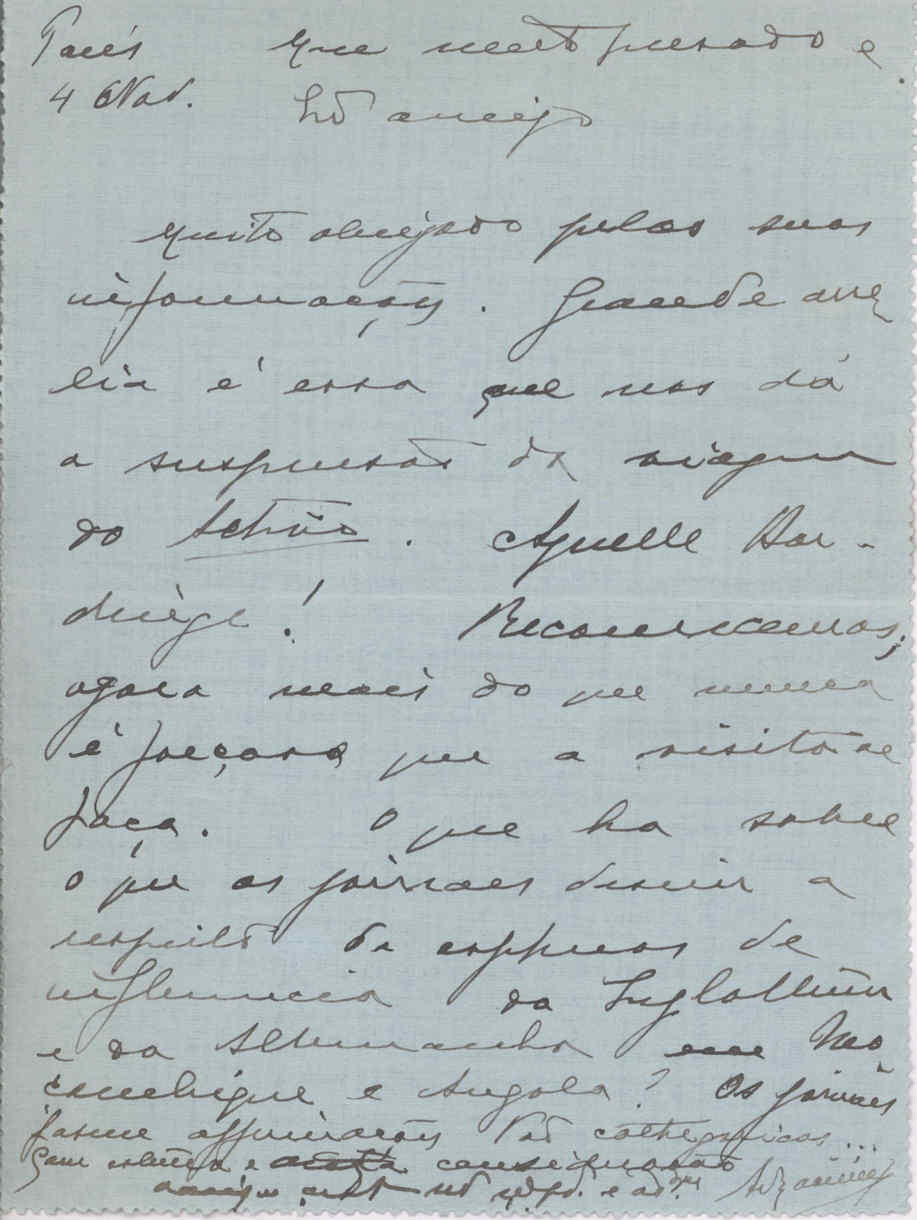 París Meu muito presado e
4 Nov. amigo
Muito obrigado pelas suas
informações. Grande arre
lia é essa que nos dá
a suspensão da viagem
do Activo. Aquelle Har-
dinge! Recomecemos;
agora mais do que nunca
é forçoso que a visita se
faça. O que ha sobre
o que os jornaes dizem a
respeito da espheras de
influencia da Inglaterra
e da Allemanha em Mo
çambique e Angola? Os jornaes
fazem affirmações tão cathegoricas...
Com estima e consideração
amigo